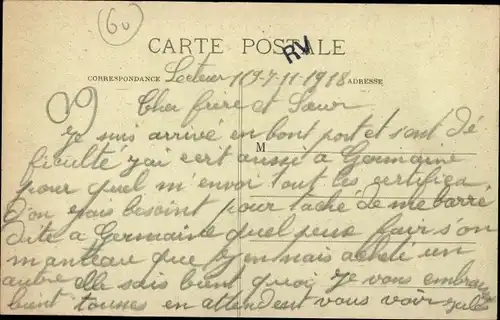 60
CARTE POSTALE
RV
CORRESPONDANCE
ADRESSE
Lecteur 119-7-11-1918
Cher frère et Sœur
Je suis arrivé en bont port et sant dé
M
ficulté j'ai ecrit aussi a Germaine
pour quel m'envoi tout les certifica
d'on j'ais besoint pour taché de me barré
dite a Germaine quel peux fair s'on
manteau que j'en n'ais acheté un
autre elle sais bient quoi je vous embrass
bient tousses en attendent vous voir